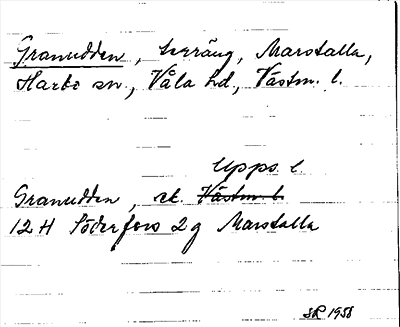 Granudden, terräng, Marstalla,
Harbo sn., Våla hd., Västm. l.
Upps. l
Granudden, rt. Västm. l.
12 H Söderfors 2 g Marstalla
SR 1958